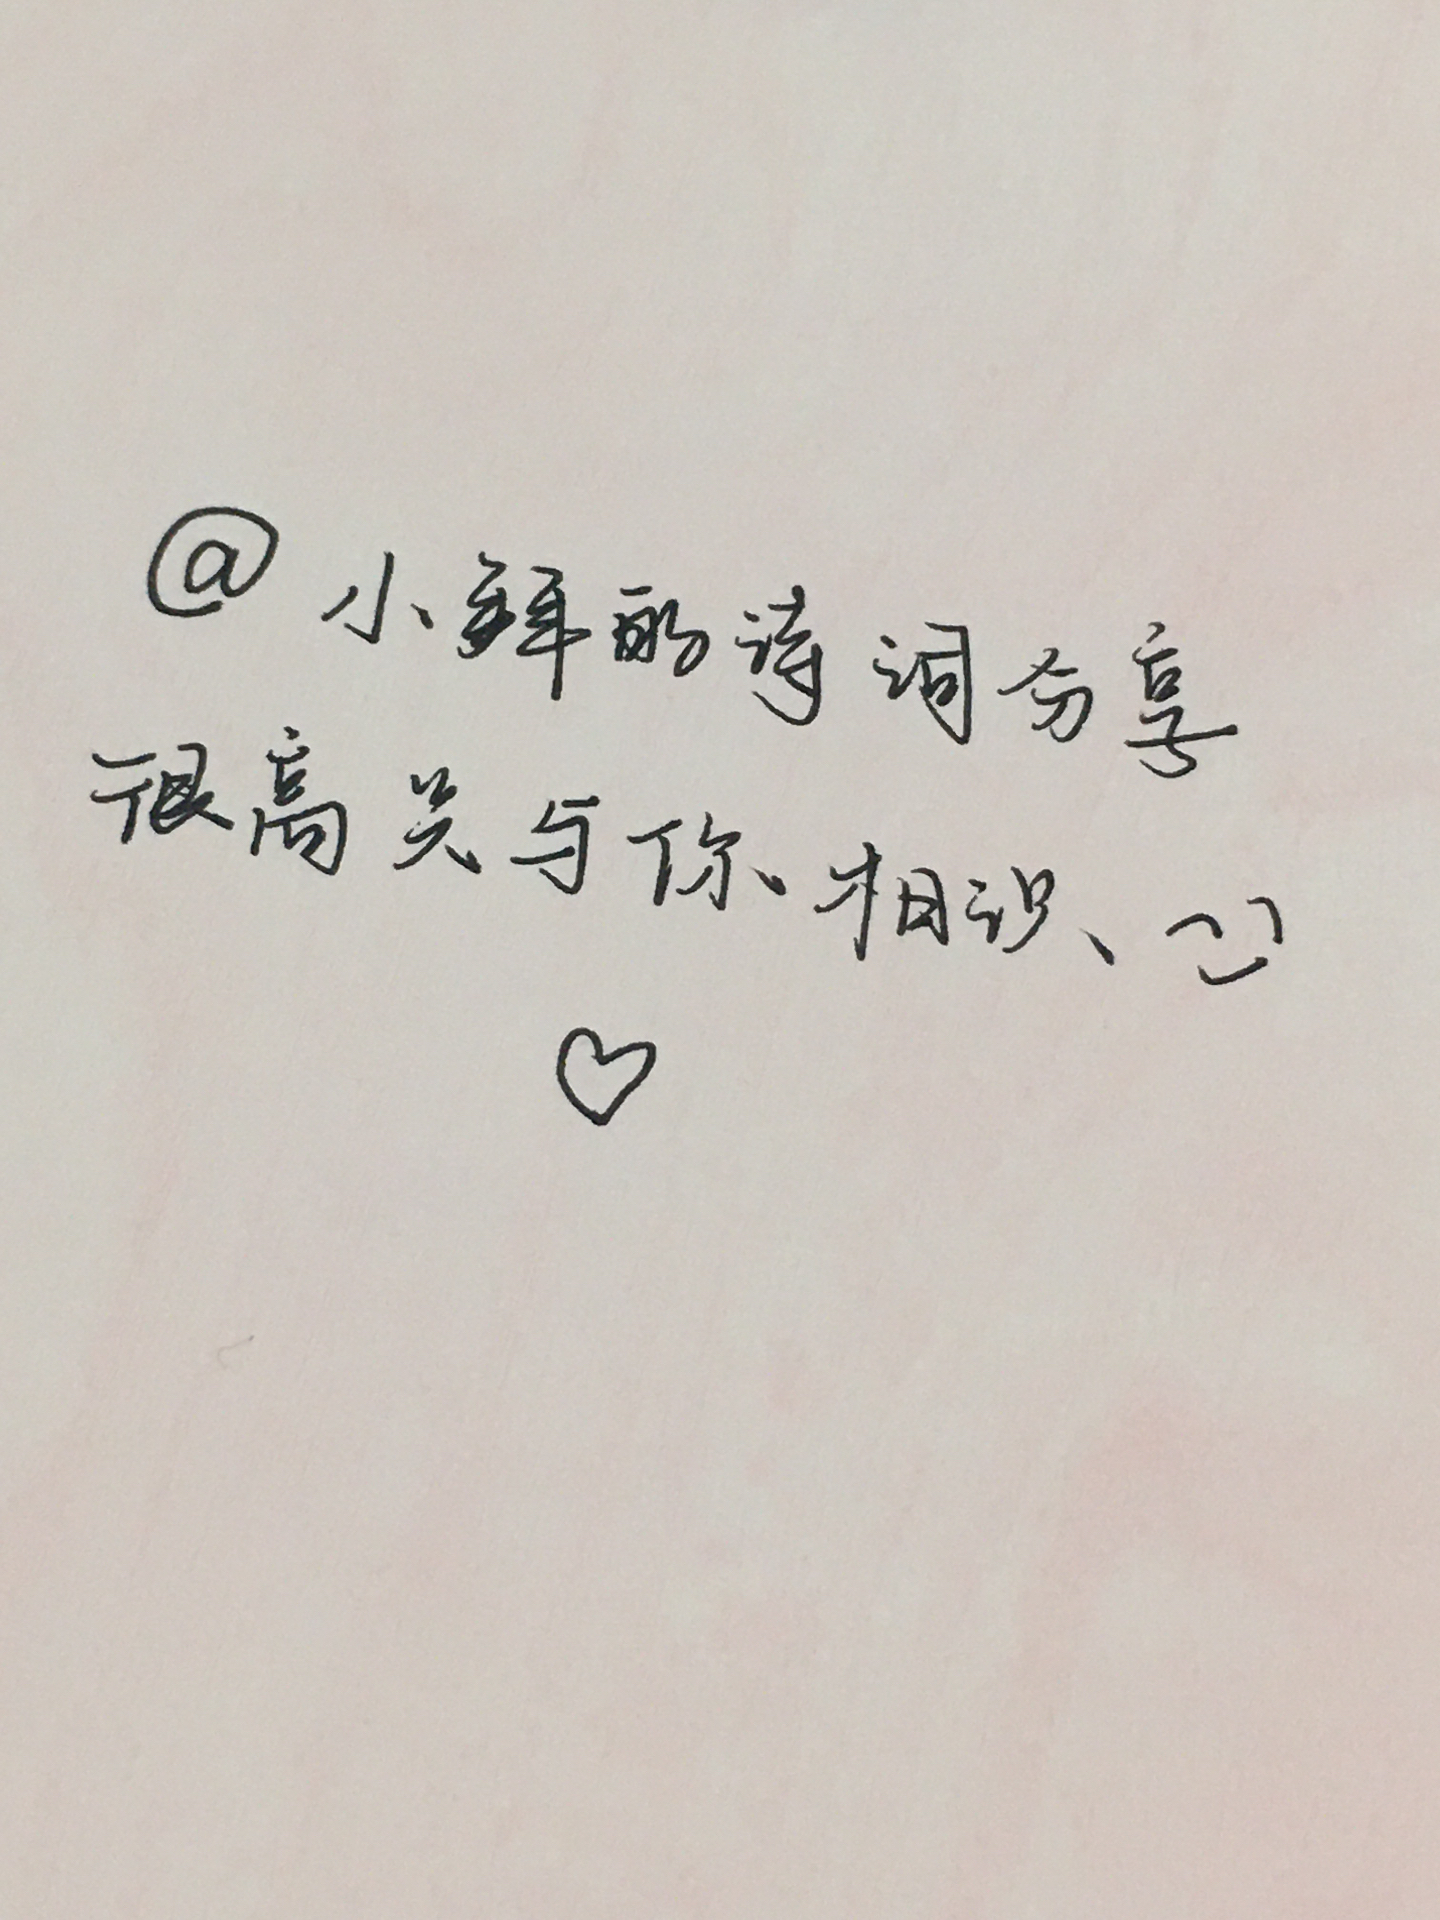 @小拜的诗词分享
很高兴与你相识、